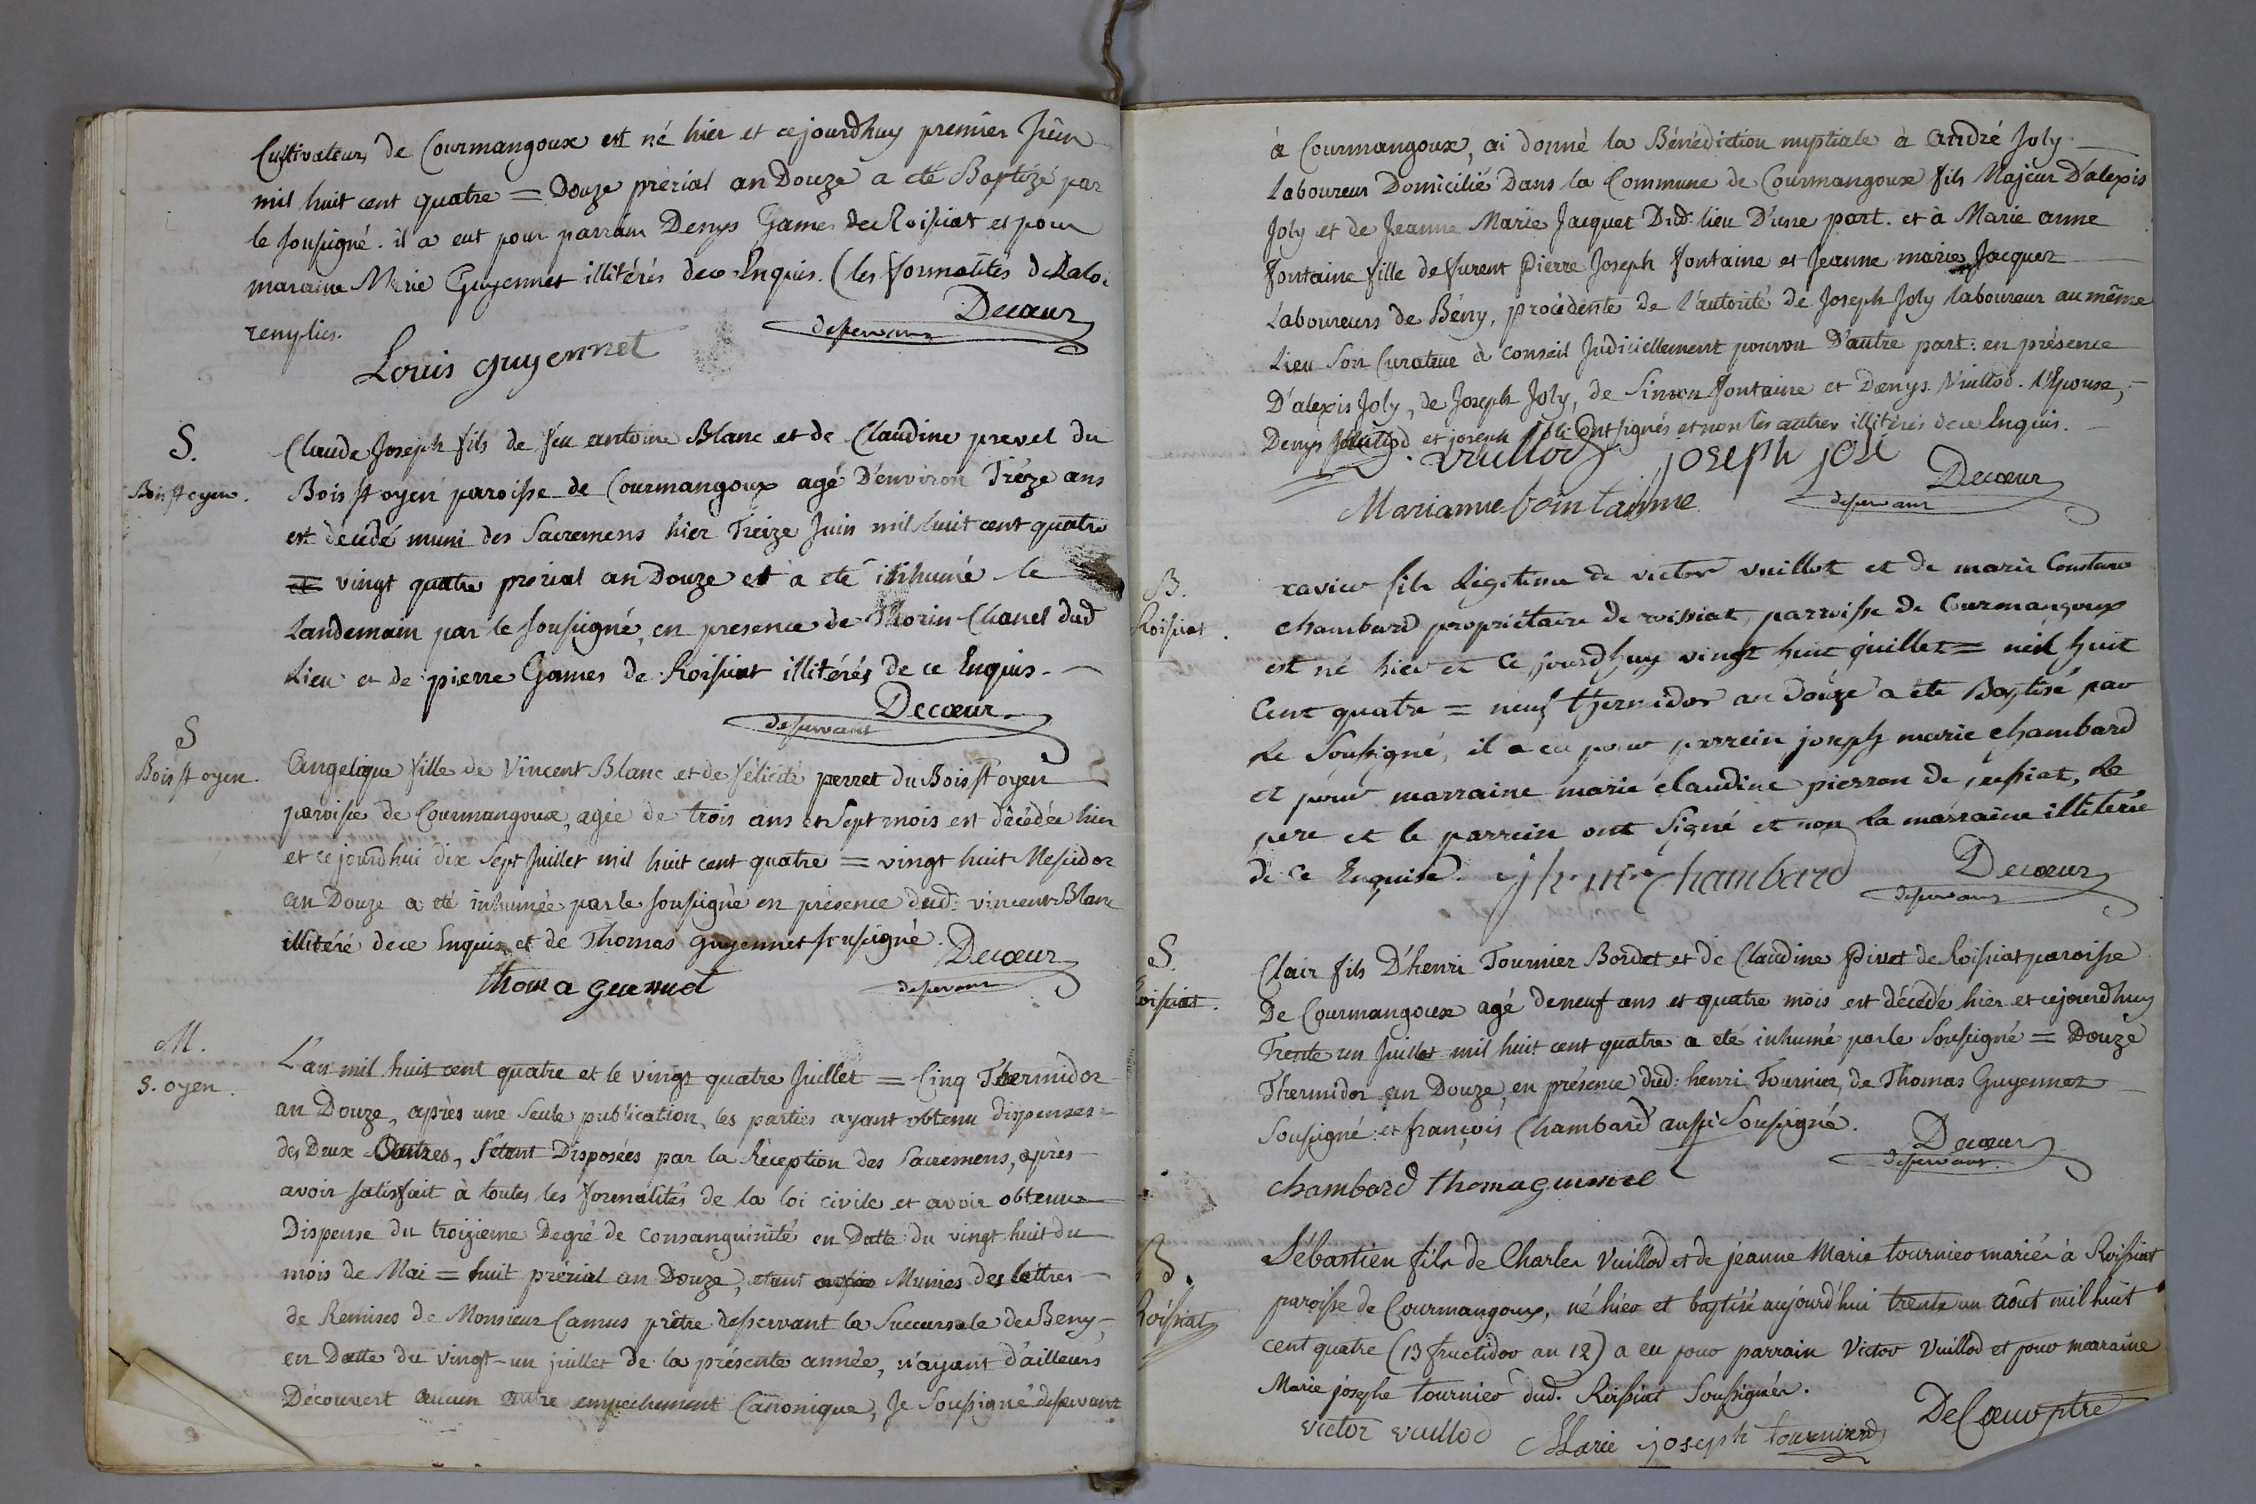 Cultivateur de Courmangoux est né hier et cejourdhuy premier Juin
mil huit cent quatre = Douze prérial an Douze a eté Baptizé par
le soussigné. il a eut pour parrain Denys Games de Roissiat et pour
maraine Marie Guyennet illitérés de ce Enquis. (les formalités de la lo.
remplies.
Decœur
desservant
Louis guyennet
S.
Bois st oyen.
Claude Joseph fils de feu antoine Blanc et de Claudine prevel du
Bois st oyen paroisse de Courmangoux agé D'environ Treize ans
est decédé muni des Sacremens hier Treize Juin mil huit cent quatre
et vingt quatre prérial an Douze et a eté inhumé le
Landemain par le soussigné, en presence de Thorin Chanel dud
Lieu et de pierre Games de Roissiat illitérés de ce Enquis.
Decœur
desservant
S
Bois st oyen.
Angelique fille de Vincent Blanc et de félicité perret du Bois st oyen
paroisse de Courmangoux, agée de trois ans et sept mois est décédée hier
et cejourdhui dix sept Juillet mil huit cent quatre = vingt huit Messidor
an Douze a eté inhumée par le soussigné en présence dud: vincent Blanc
illitéré de ce Enquis et de Thomas guyennet soussigné.
Decœur
desservant
thoma guennet
M.
S. oyen.
L'an mil huit cent quatre et le vingt quatre Juillet = Cinq Thermidor
an Douze, après une seule publication, les parties ayant obtenu dispenses
des Deux Autres, s'étant Disposées par la Réception des Sacremens, après
avoir satisfait à toutes les formalités de la loi civile et avoir obtenu
Dispense du troizieme Degré de Consanguinité en Datte du vingt huit du
mois de Mai = huit prérial an Douze, étant Munies des lettres
de Remises de Monsieur Camus prêtre desservant la Succursale de Beny,
en Datte du vingt-un juillet de la présente année, n'ayant d'ailleurs
Découvert aucun autre empechement Canonique, Je Soussigné desservant
à Courmangoux, ai donné la Bénédiction nuptiale à André Joly
Laboureur Domicilié Dans la Commune de Courmangoux fils Majeur D'alexis
Joly et de Jeanne Marie Jacquet Dud. lieu D'une part. et à Marie anne
fontaine fille de furent Pierre Joseph fontaine et Jeanne marie Jacquet
Laboureurs de Bény, procédente de l'autorité de Joseph Joly laboureur au même
Lieu Son Curateur à Conseil Judiciellement pourvu D'autre part: en présence
D'alexis Joly, de Joseph Joly, de Simon fontaine et Denys Vuillod. l'Epouse,
Denys Vuillod et joseph joli Ont signés et non les autres illitérés de ce Enquis.
Vuillod joseph joli
Decœur
desservant
Marianne fointainne
B.
Roissiat.
xavier fils Légitime de victor vuillot et de marie Constance
chambard propriétaire de roissiat, parroisse de Courmangoux
est né hier et ce jourdhuy vingt huit juillet = mil huit
Cent quatre = neuf thermidor an douze a été Baptisé par
Le Soussigné, il a eu pour parrein joseph marie chambard
et pour marraine marie claudine pierron de jussiat, Le
pere et le parrein ont signé et non La marraine illiterée
de ce Enquise.
Chambard
Decœur
desservant
S.
Roissiat.
Clair fils D'henri Tournier Bordet et de Claudine Pivet de Roissiat paroisse
De Courmangoux agé de neuf ans et quatre mois est décédé hier et cejourdhuy
Trente un Juillet mil huit cent quatre a été inhumé par le Soussigné = Douze
Thermidor an Douze, en présence dud: henri Tournier, de Thomas Guyennet
Soussigné et françois Chambard aussi Soussigné.
Decœur
desservant
chambard thoma guennet
B.
Roissiat
Sébastien fils de Charles Vuillod et de jeanne Marie tournier mariés à Roissiat
paroisse de Courmangoux, né hier et baptisé aujourd'hui trente un août mil huit
cent quatre (13 fructidor an 12) a eu pour parrain Victor Vuillod et pour maraine
Marie josephe tournier dud. Roissiat Soussignés.
DeCœur ptre
victor vuillod Marie joseph tournierd